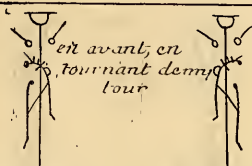 en avant, en
tournant demy
tour